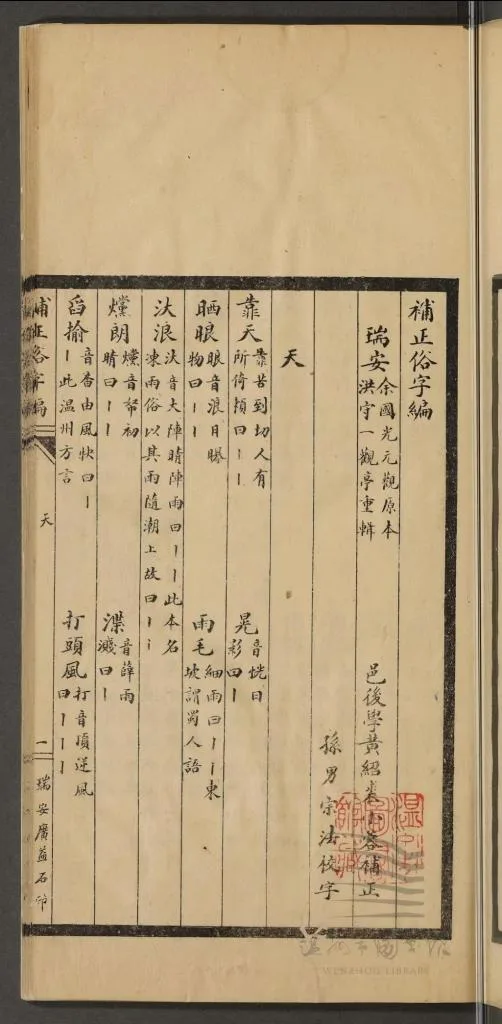 補正俗字編
瑞安
余國光元觀原本
洪守一觀亭重輯
邑後學黃紹
小蓉補正
孫男宗法校字
天
靠天
靠苦到切人有
所倚頼曰丨丨
晃
音恍日
彩曰丨
晒眼
眼音浪日曝
物曰丨丨
雨毛
細雨曰丨丨東
坡謂蜀人語
汏浪
汏音大陣晴陣雨曰丨丨此本名
凍雨俗以其雨隨潮上故曰丨丨
爣朗
爣音帑初
晴曰丨丨
渫
音薛雨
濺曰丨
舀揄
丨此温州方言
打頭風
打音頂逆風
曰丨丨丨
補正俗字編
天
一
瑞安廣益石印
WENZHOU LIBRARY